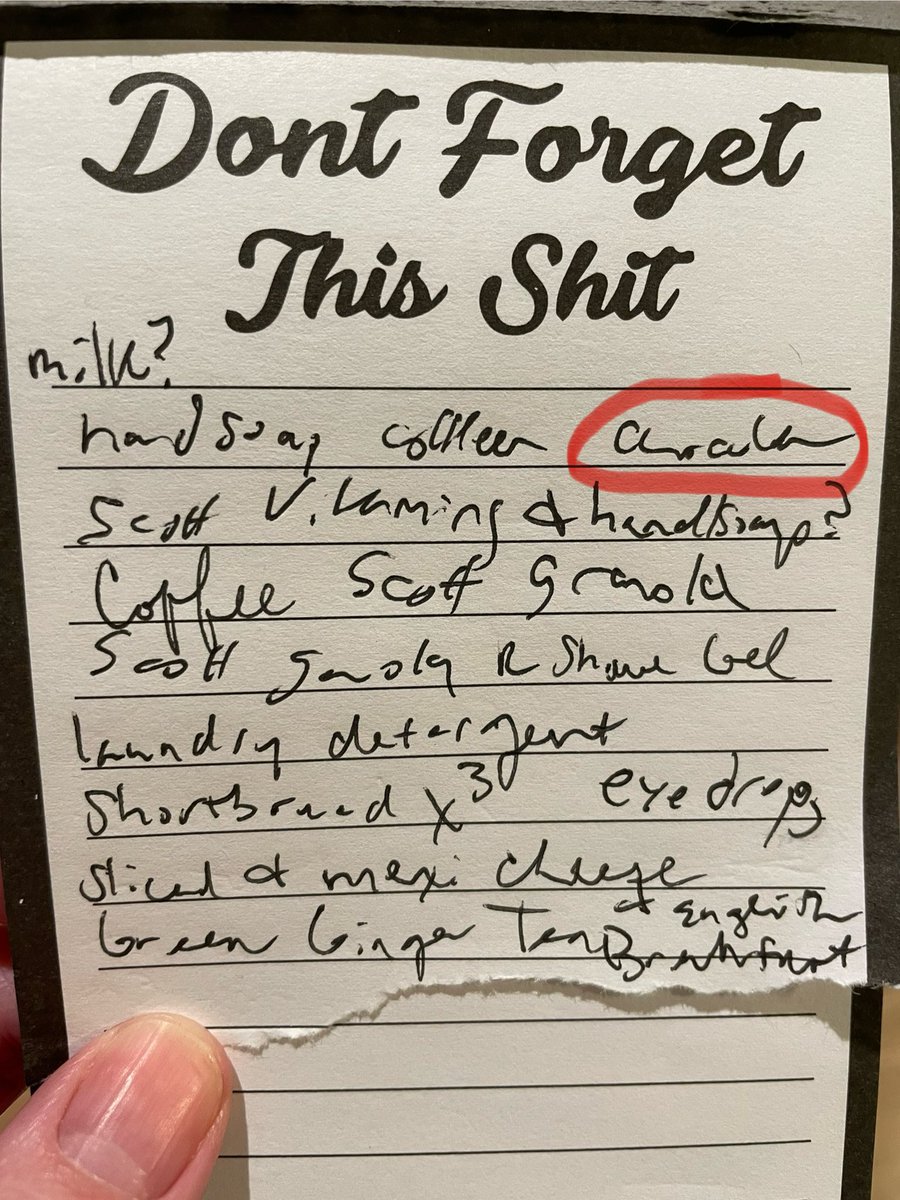 Dont Forget
This Shit
milk?
hand soap
Scott & handsoap?
Coffee Scott
Scott R Shave Gel
laundry detergent
Shortbread x3 eye drops
Sliced & mexi cheese
Green Ginger Tea & English
Breakfast